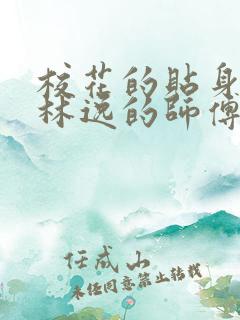 校花的貼身
林逸的師傅
任成山
未经同意禁止转载